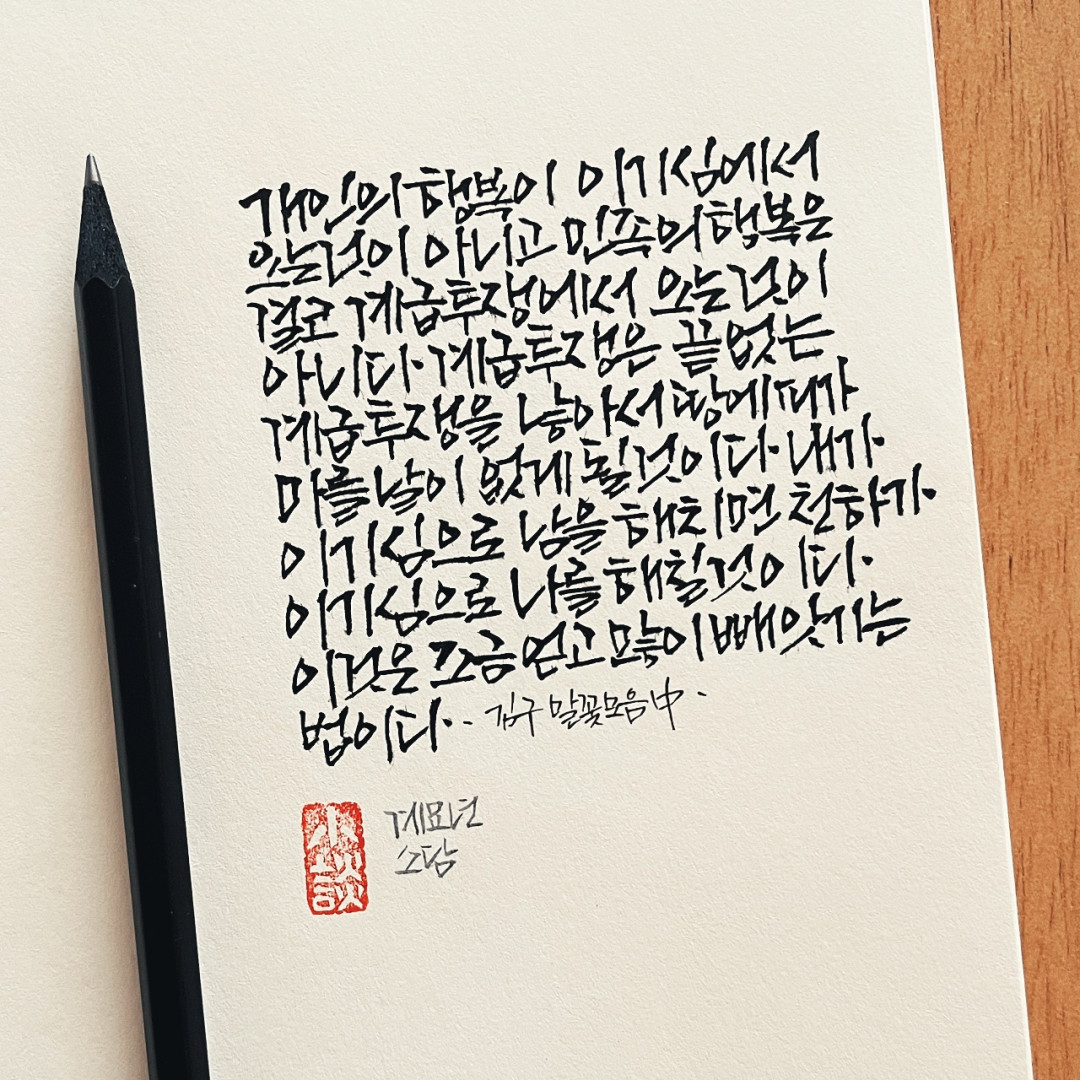 개인의 행복이 이기심에서
오는것이 아니고 민족의 행복은
결코 계급투쟁에서 오는것이
아니다. 계급투쟁은 끝없는
계급투쟁을 낳아서 땅에 피가
마를 날이 없게 될것이다. 내가
이기심으로 남을 해치면 천하가
이기심으로 나를 해칠것이다.
이것은 조금 얻고 많이 빼앗기는
법이다.. 김구 말꽃모음 中.
계묘년
소담
小談